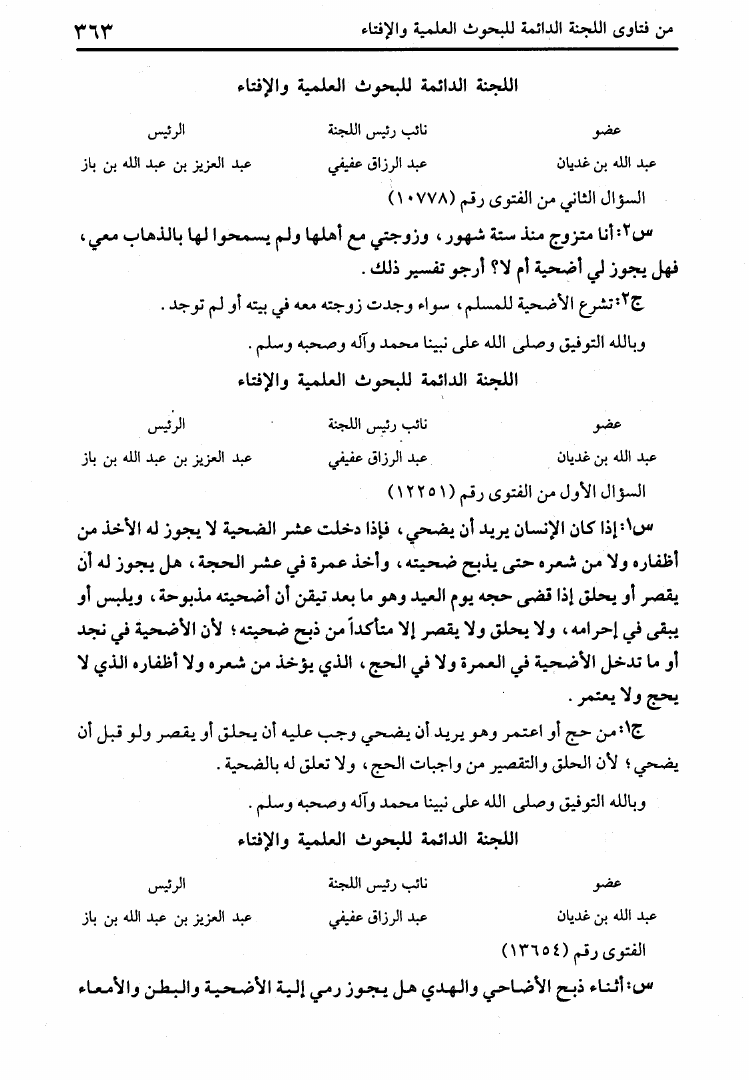 من فتاوى اللجنة الدائمة للبحوث العلمية والإفتاء ٣٦٣
اللجنة الدائمة للبحوث العلمية والإفتاء
عضو نائب رئيس اللجنة الرئيس
عبد الله بن غديان عبد الرزاق عفيفي عبد العزيز بن عبد الله بن باز
السؤال الثاني من الفتوى رقم (١٠٧٧٨)
س٢: أنا متزوج منذ ستة شهور، وزوجتي مع أهلها ولم يسمحوا لها بالذهاب معي،
فهل يجوز لي أضحية أم لا؟ أرجو تفسير ذلك.
ج٢: تشرع الأضحية للمسلم، سواء وجدت زوجته معه في بيته أو لم توجد.
وبالله التوفيق وصلى الله على نبينا محمد وآله وصحبه وسلم.
اللجنة الدائمة للبحوث العلمية والإفتاء
عضو نائب رئيس اللجنة الرئيس
عبد الله بن غديان عبد الرزاق عفيفي عبد العزيز بن عبد الله بن باز
السؤال الأول من الفتوى رقم (١٢٢٥١)
س١: إذا كان الإنسان يريد أن يضحي، فإذا دخلت عشر الضحية لا يجوز له الأخذ من
أظفاره ولا من شعره حتى يذبح ضحيته، وأخذ عمرة في عشر الحجة، هل يجوز له أن
يقصر أو يحلق إذا قضى حجه يوم العيد وهو ما بعد تيقن أن أضحيته مذبوحة، ويلبس أو
يبقى في إحرامه، ولا يحلق ولا يقصر إلا متأكداً من ذبح ضحيته؛ لأن الأضحية في نجد
أو ما تدخل الأضحية في العمرة ولا في الحج، الذي يؤخذ من شعره ولا أظفاره الذي لا
يحج ولا يعتمر.
ج١: من حج أو اعتمر وهو يريد أن يضحي وجب عليه أن يحلق أو يقصر ولو قبل أن
يضحي؛ لأن الحلق والتقصير من واجبات الحج، ولا تعلق له بالضحية.
وبالله التوفيق وصلى الله على نبينا محمد وآله وصحبه وسلم.
اللجنة الدائمة للبحوث العلمية والإفتاء
عضو نائب رئيس اللجنة الرئيس
عبد الله بن غديان عبد الرزاق عفيفي عبد العزيز بن عبد الله بن باز
الفتوى رقم (١٣٦٥٤)
س: أثناء ذبح الأضاحي والهدي هل يجوز رمي إلية الأضحية والبطن والأمعاء